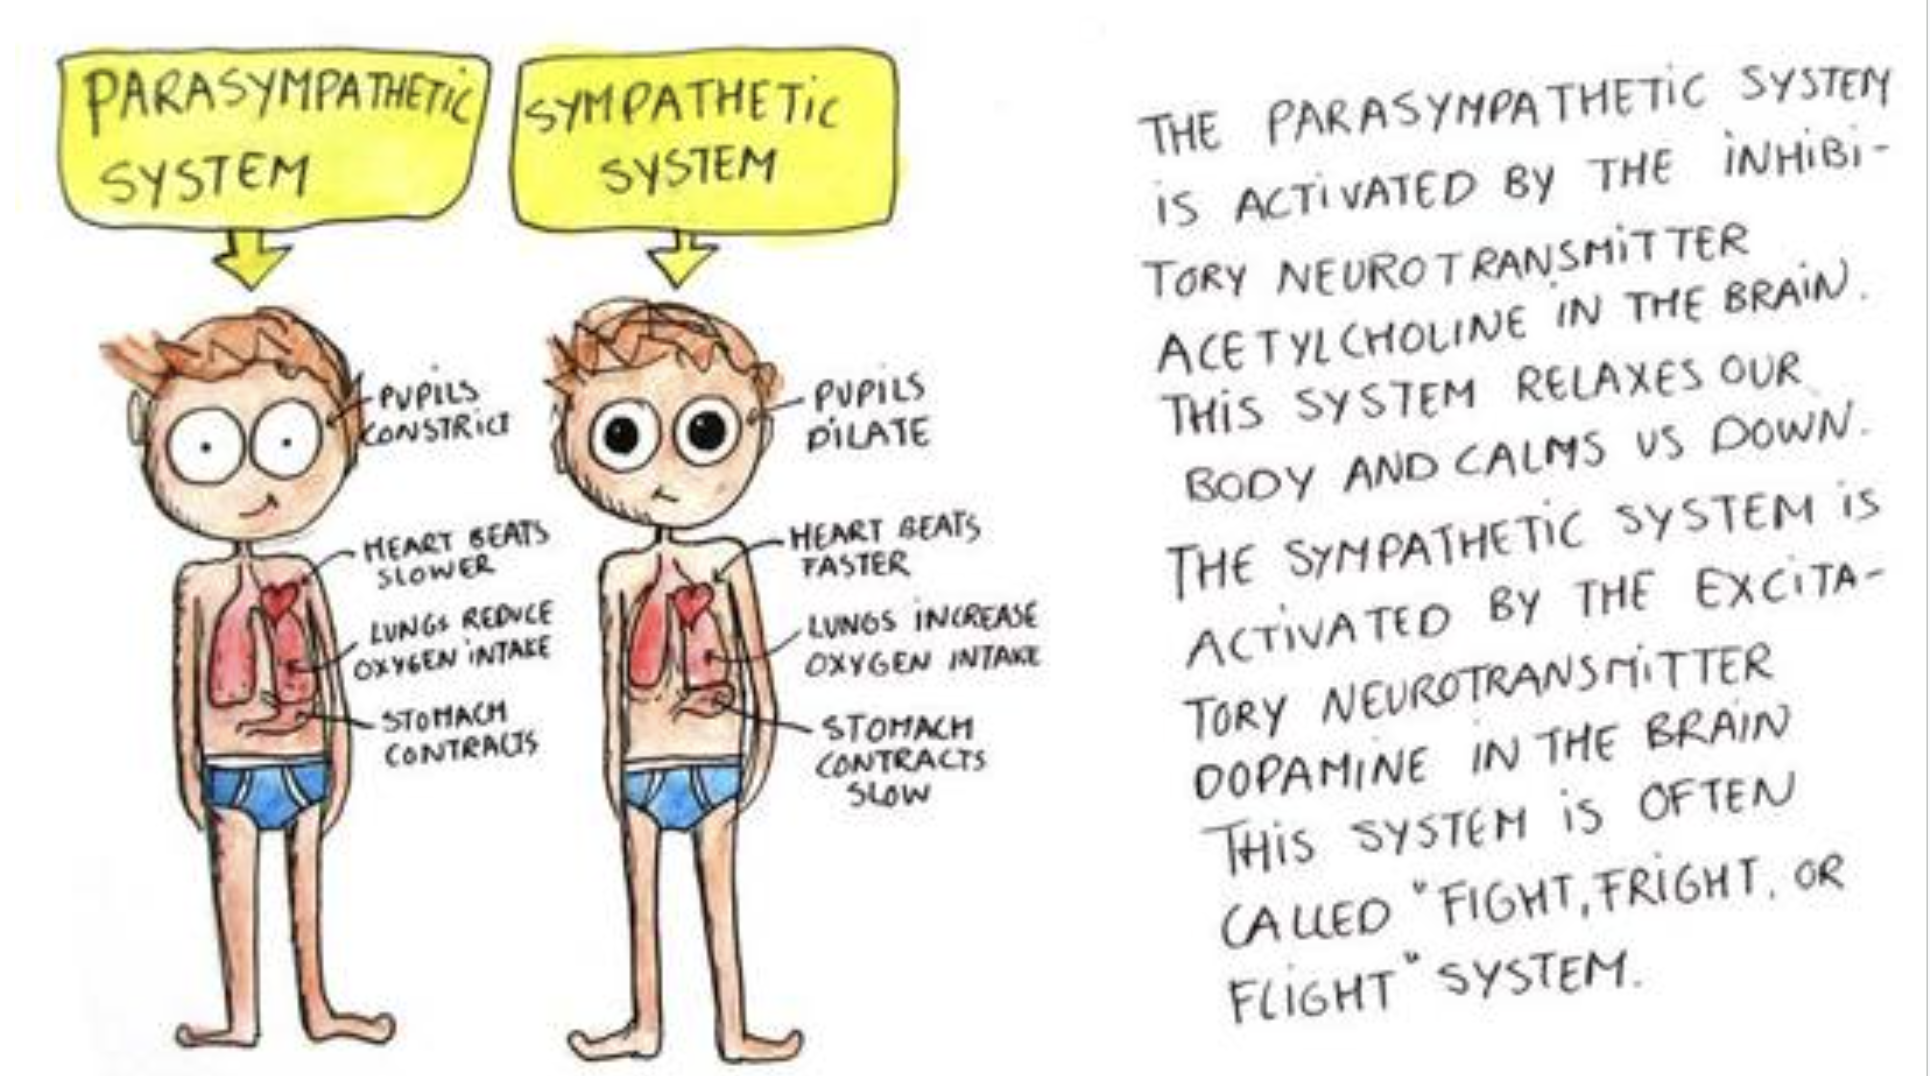 PARASYMPATHETIC
SYSTEM
SYMPATHETIC
SYSTEM
PUPILS
CONSTRICT
HEART BEATS
SLOWER
LUNGS REDUCE
OXYGEN INTAKE
STOMACH
CONTRACTS
PUPILS
DILATE
HEART BEATS
FASTER
LUNGS INCREASE
OXYGEN INTAKE
STOMACH
CONTRACTS
SLOW
THE PARASYMPATHETIC SYSTEM
IS ACTIVATED BY THE INHIBI-
TORY NEUROTRANSMITTER
ACETYLCHOLINE IN THE BRAIN.
THIS SYSTEM RELAXES OUR
BODY AND CALMS US DOWN.
THE SYMPATHETIC SYSTEM IS
ACTIVATED BY THE EXCITA-
TORY NEUROTRANSMITTER
DOPAMINE IN THE BRAIN
THIS SYSTEM IS OFTEN
CALLED "FIGHT, FRIGHT, OR
FLIGHT" SYSTEM.